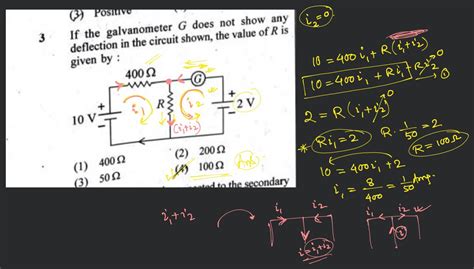 (3) Positive
3 If the galvanometer G does not show any
deflection in the circuit shown, the value of R is
given by :
400 Ω
G
10 V
R
2 V
i₁
i₂
(i₁+i₂)
(1) 400 Ω
(2) 200 Ω
(3) 50 Ω
(4) 100 Ω Ans.
to the secondary
i₂=0
10 = 400i₁ + R(i₁+i₂)
10 = 400i₁ + Ri₁ + Ri₂ 0
①
2 = R(i₁+i₂) 0
* Ri₁ = 2
R · 1/50 = 2
R = 100Ω
10 = 400i₁ + 2
i₁ = 8/400 = 1/50 Amp.
i₁+i₂
i₁ i₂
i = i₁+i₂
i₁ i₂
i